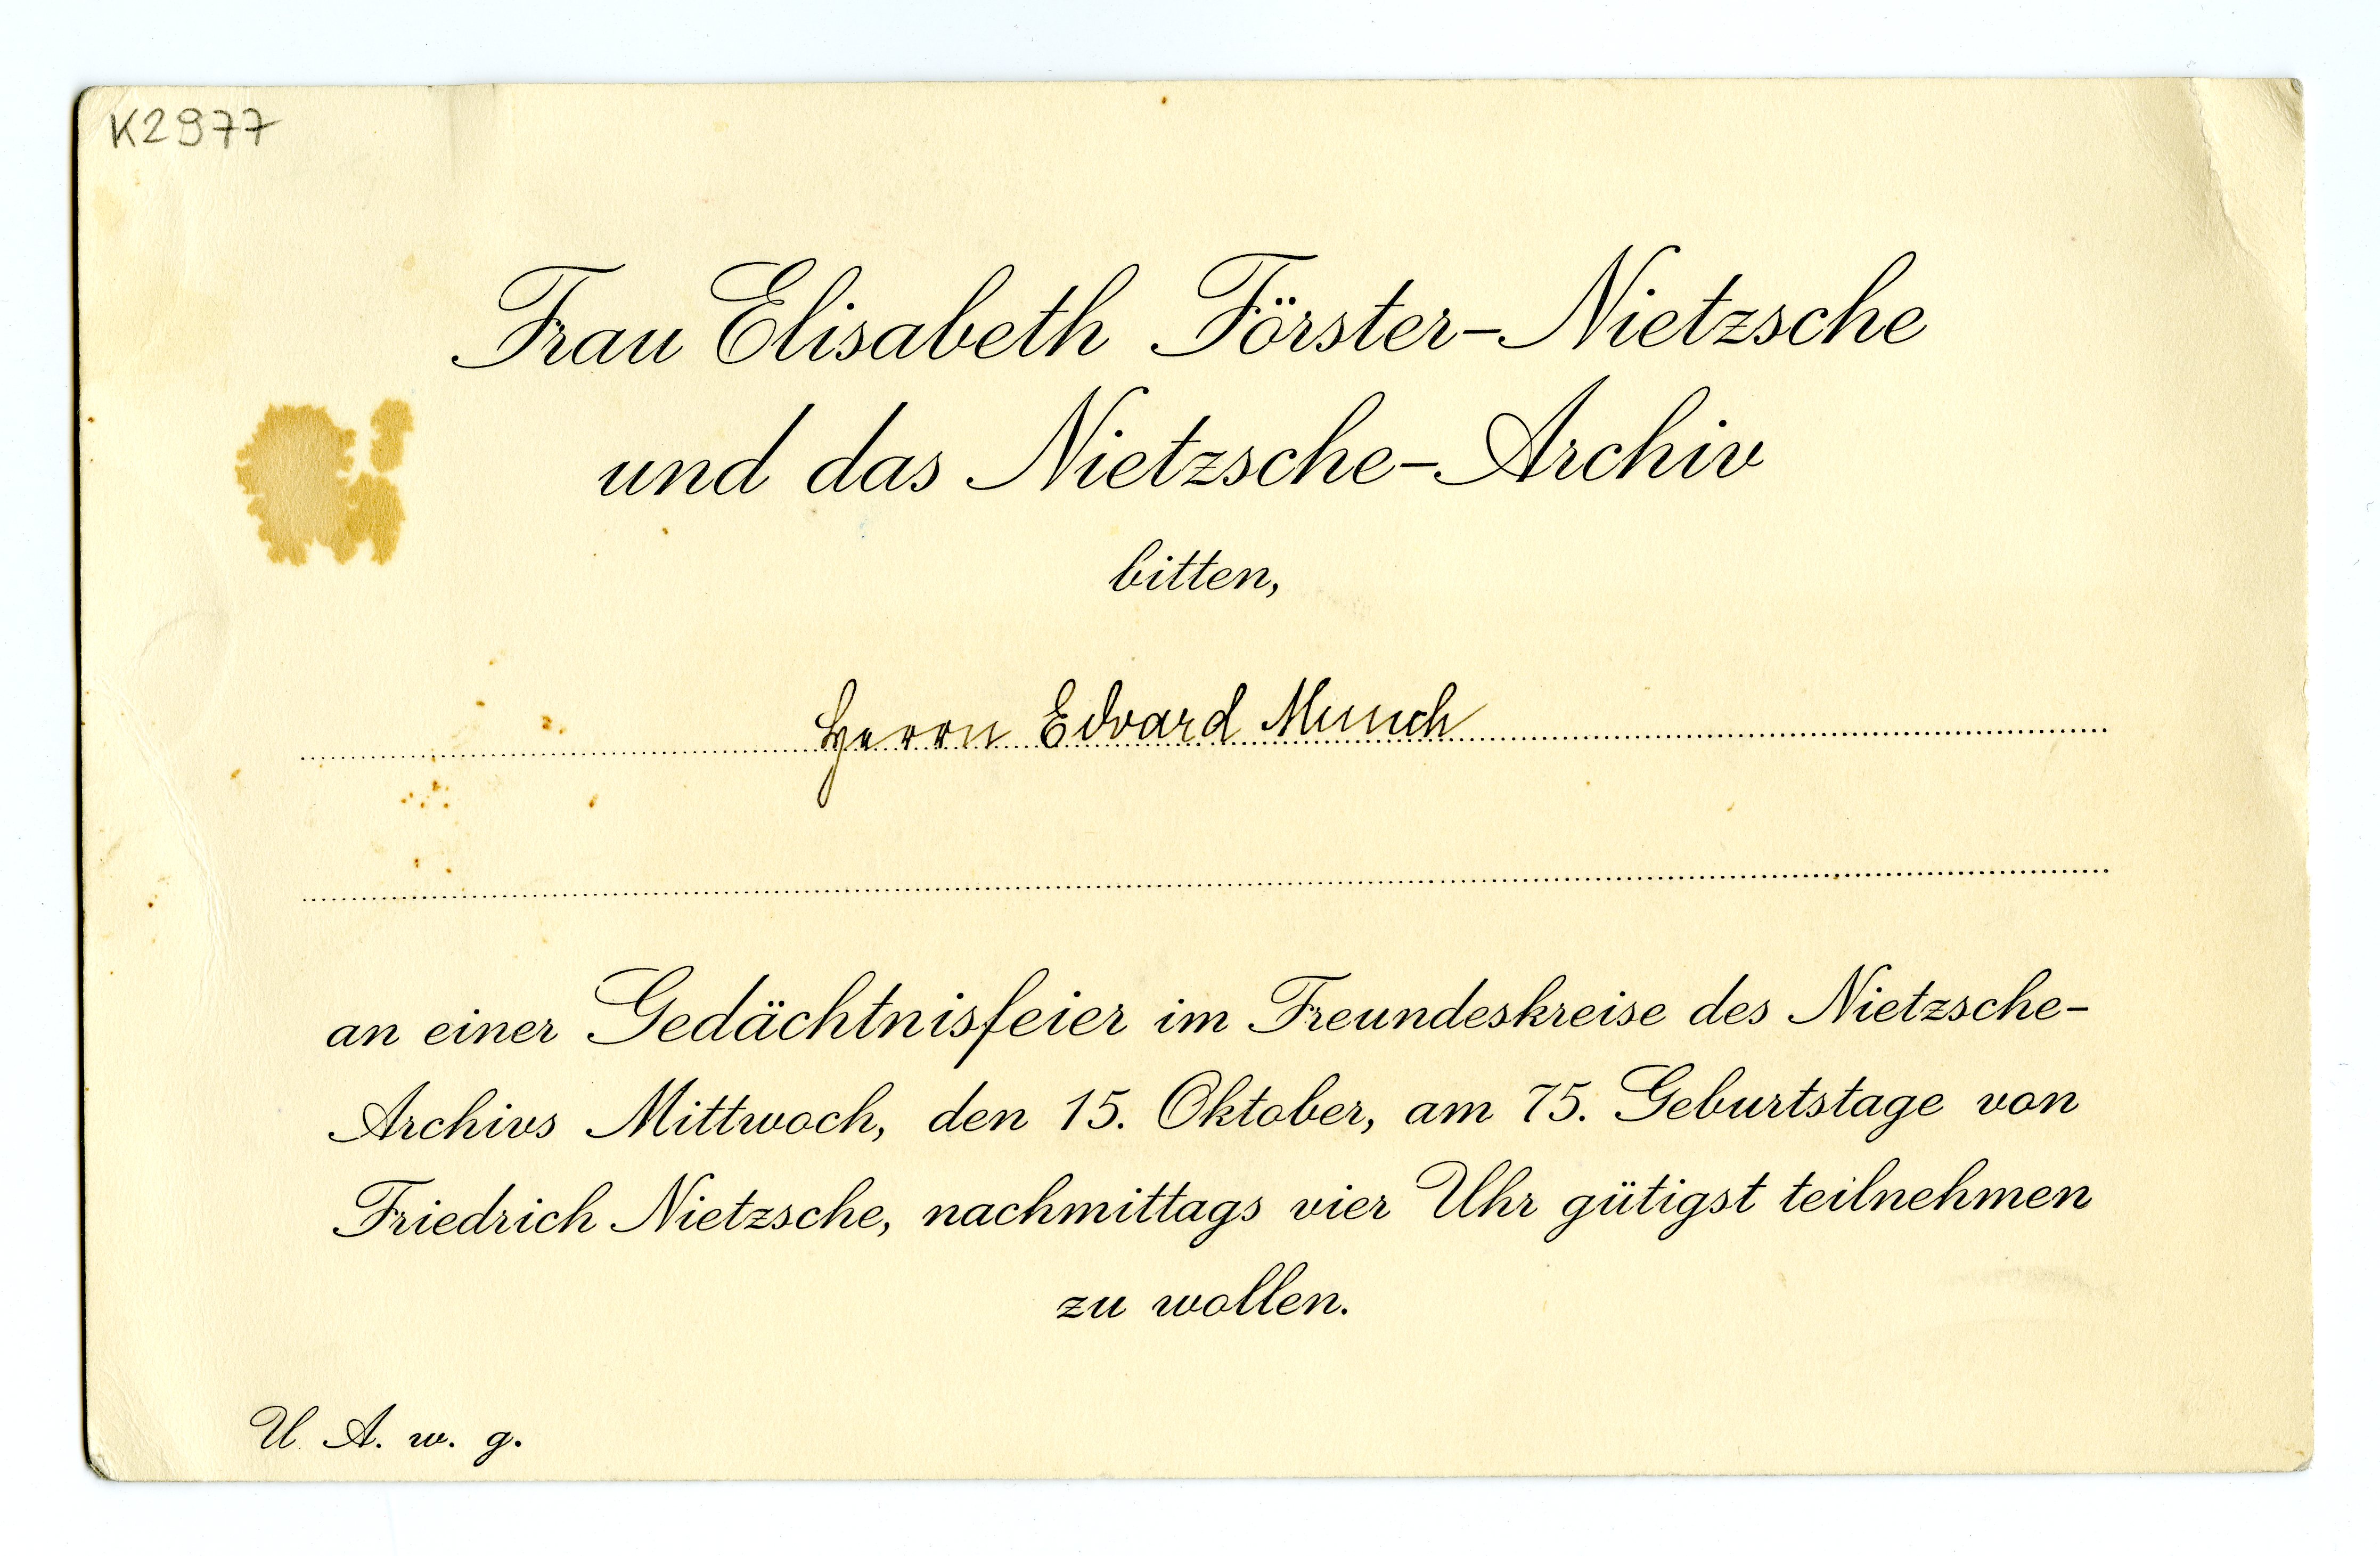 K2977
Frau Elisabeth Förster-Nietzsche
und das Nietzsche-Archiv
bitten,
Herrn Edvard Munch
an einer Gedächtnisfeier im Freundeskreise des Nietzsche-
Archivs Mittwoch, den 15. Oktober, am 75. Geburtstage von
Friedrich Nietzsche, nachmittags vier Uhr gütigst teilnehmen
zu wollen.
U. A. w. g.